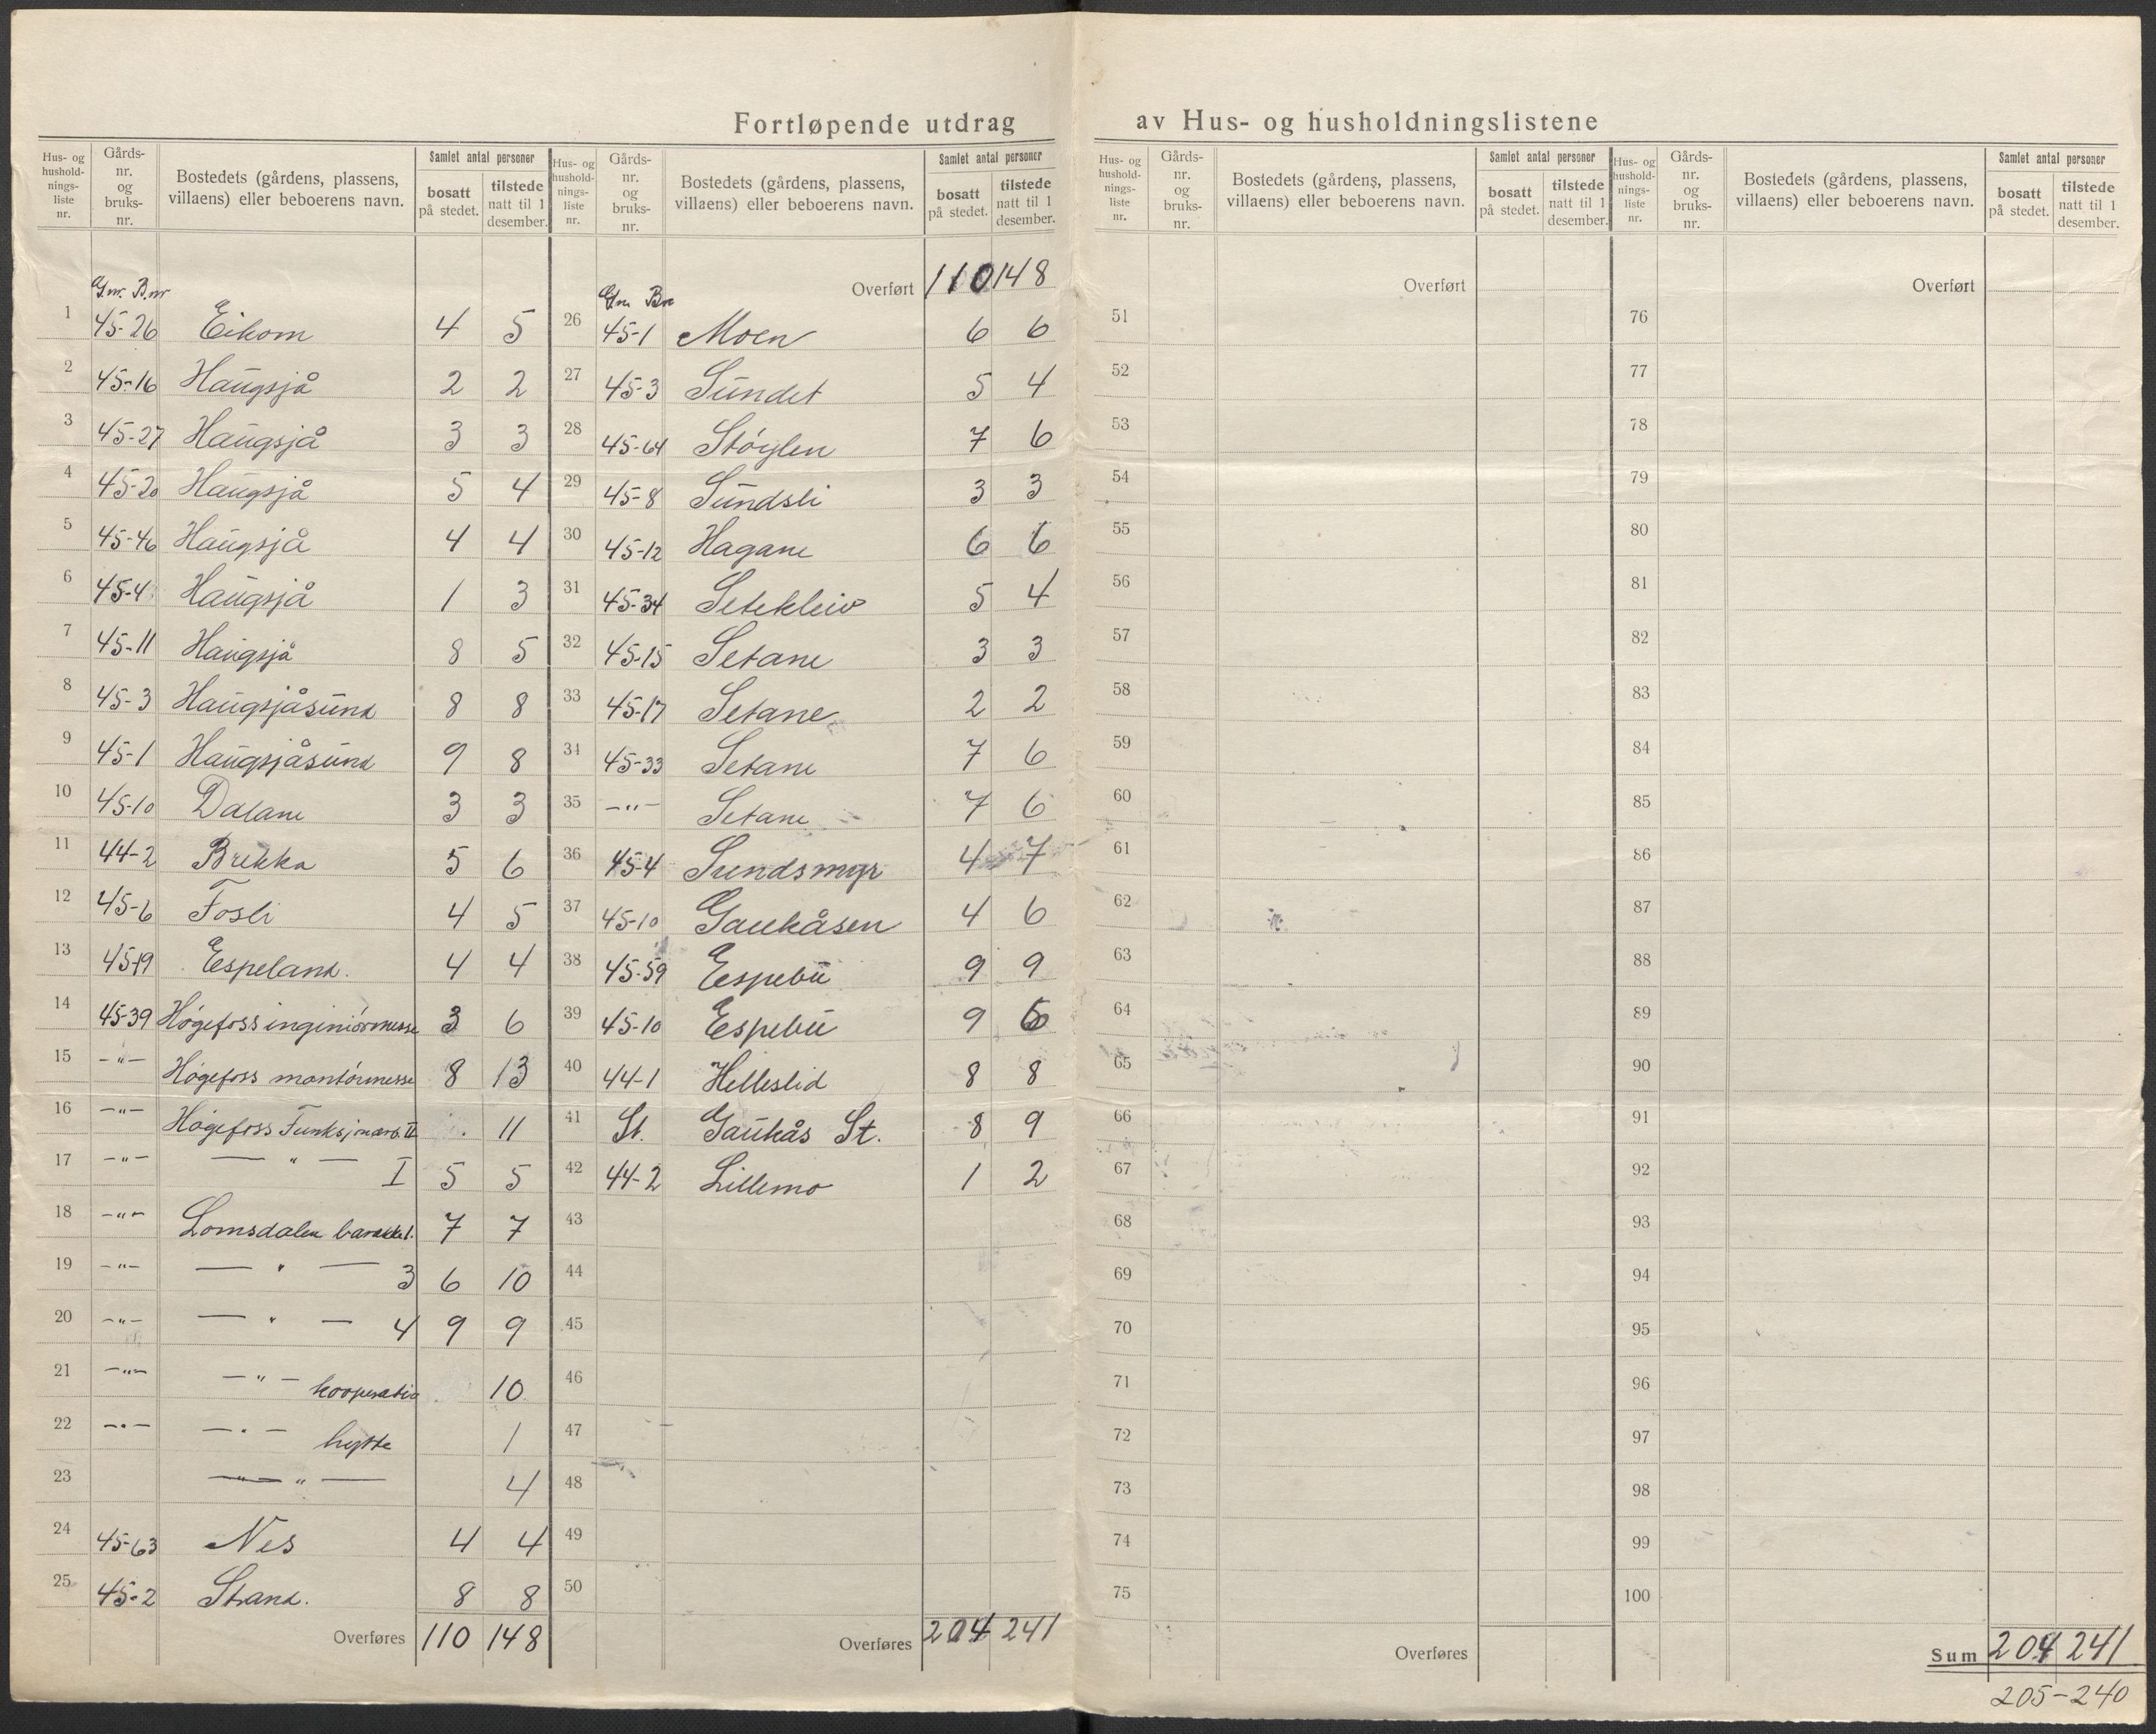 Fortløpende utdrag av Hus- og husholdningslistene
Hus- og hushold-nings-liste nr. Gårds-nr. og bruks-nr. Bostedets (gårdens, plassens, villaens) eller beboerens navn. Samlet antal personer bosatt på stedet. tilstede natt til 1 desember.
Gnr. B.nr
1 45-26 Eikom 4 5
2 45-16 Haugsjå 2 2
3 45-27 Haugsjå 3 3
4 45-20 Haugsjå 5 4
5 45-46 Haugsjå 4 4
6 45-4 Haugsjå 1 3
7 45-11 Haugsjå 8 5
8 45-3 Haugsjåsund 8 8
9 45-1 Haugsjåsund 9 8
10 45-10 Dalane 3 3
11 44-2 Brekka 5 6
12 45-6 Fosli 4 5
13 45-19 Espeland. 4 4
14 45-39 Høgefoss ingeniörmesse 3 6
15 -"- Högefoss montörmesse 8 13
16 -"- Högefoss Funksjonærb. II 11
17 -"- — " — I 5 5
18 -"- Lomsdalen barakke 1. 7 7
19 -"- — " — 3 6 10
20 -"- — " — 4 9 9
21 -"- — " — kooperativ 10
22 -"- — " — hytte 1
23 — " — 4
24 45-63 Nes 4 4
25 45-2 Strand. 8 8
Overføres 110 148
Hus- og hushold-nings-liste nr. Gårds-nr. og bruks-nr. Bostedets (gårdens, plassens, villaens) eller beboerens navn. Samlet antal personer bosatt på stedet. tilstede natt til 1 desember.
Overført 110 148
Gnr Bnr
26 45-1 Moen 6 6
27 45-3 Sundet 5 4
28 45-64 Støylen 7 6
29 45-8 Sundsli 3 3
30 45-12 Hagane 6 6
31 45-34 Setekleiv 5 4
32 45-15 Setane 3 3
33 45-17 Setane 2 2
34 45-33 Setane 7 6
35 -"- Setane 7 6
36 45-4 Sundsmyr 4 7
37 45-10 Gaukåsen 4 6
38 45-59 Espebu 9 9
39 45-10 Espebu 9 6
40 44-1 Helleslid 8 8
41 St. Gaukås St. 8 9
42 44-2 Lillemo 1 2
43
44
45
46
47
48
49
50
Overføres 204 241
Hus- og hushold-nings-liste nr. Gårds-nr. og bruks-nr. Bostedets (gårdens, plassens, villaens) eller beboerens navn. Samlet antal personer bosatt på stedet. tilstede natt til 1 desember.
Overført
51
52
53
54
55
56
57
58
59
60
61
62
63
64
65
66
67
68
69
70
71
72
73
74
75
Overføres
Hus- og hushold-nings-liste nr. Gårds-nr. og bruks-nr. Bostedets (gårdens, plassens, villaens) eller beboerens navn. Samlet antal personer bosatt på stedet. tilstede natt til 1 desember.
Overført
76
77
78
79
80
81
82
83
84
85
86
87
88
89
90
91
92
93
94
95
96
97
98
99
100
Sum 204 241
205-240